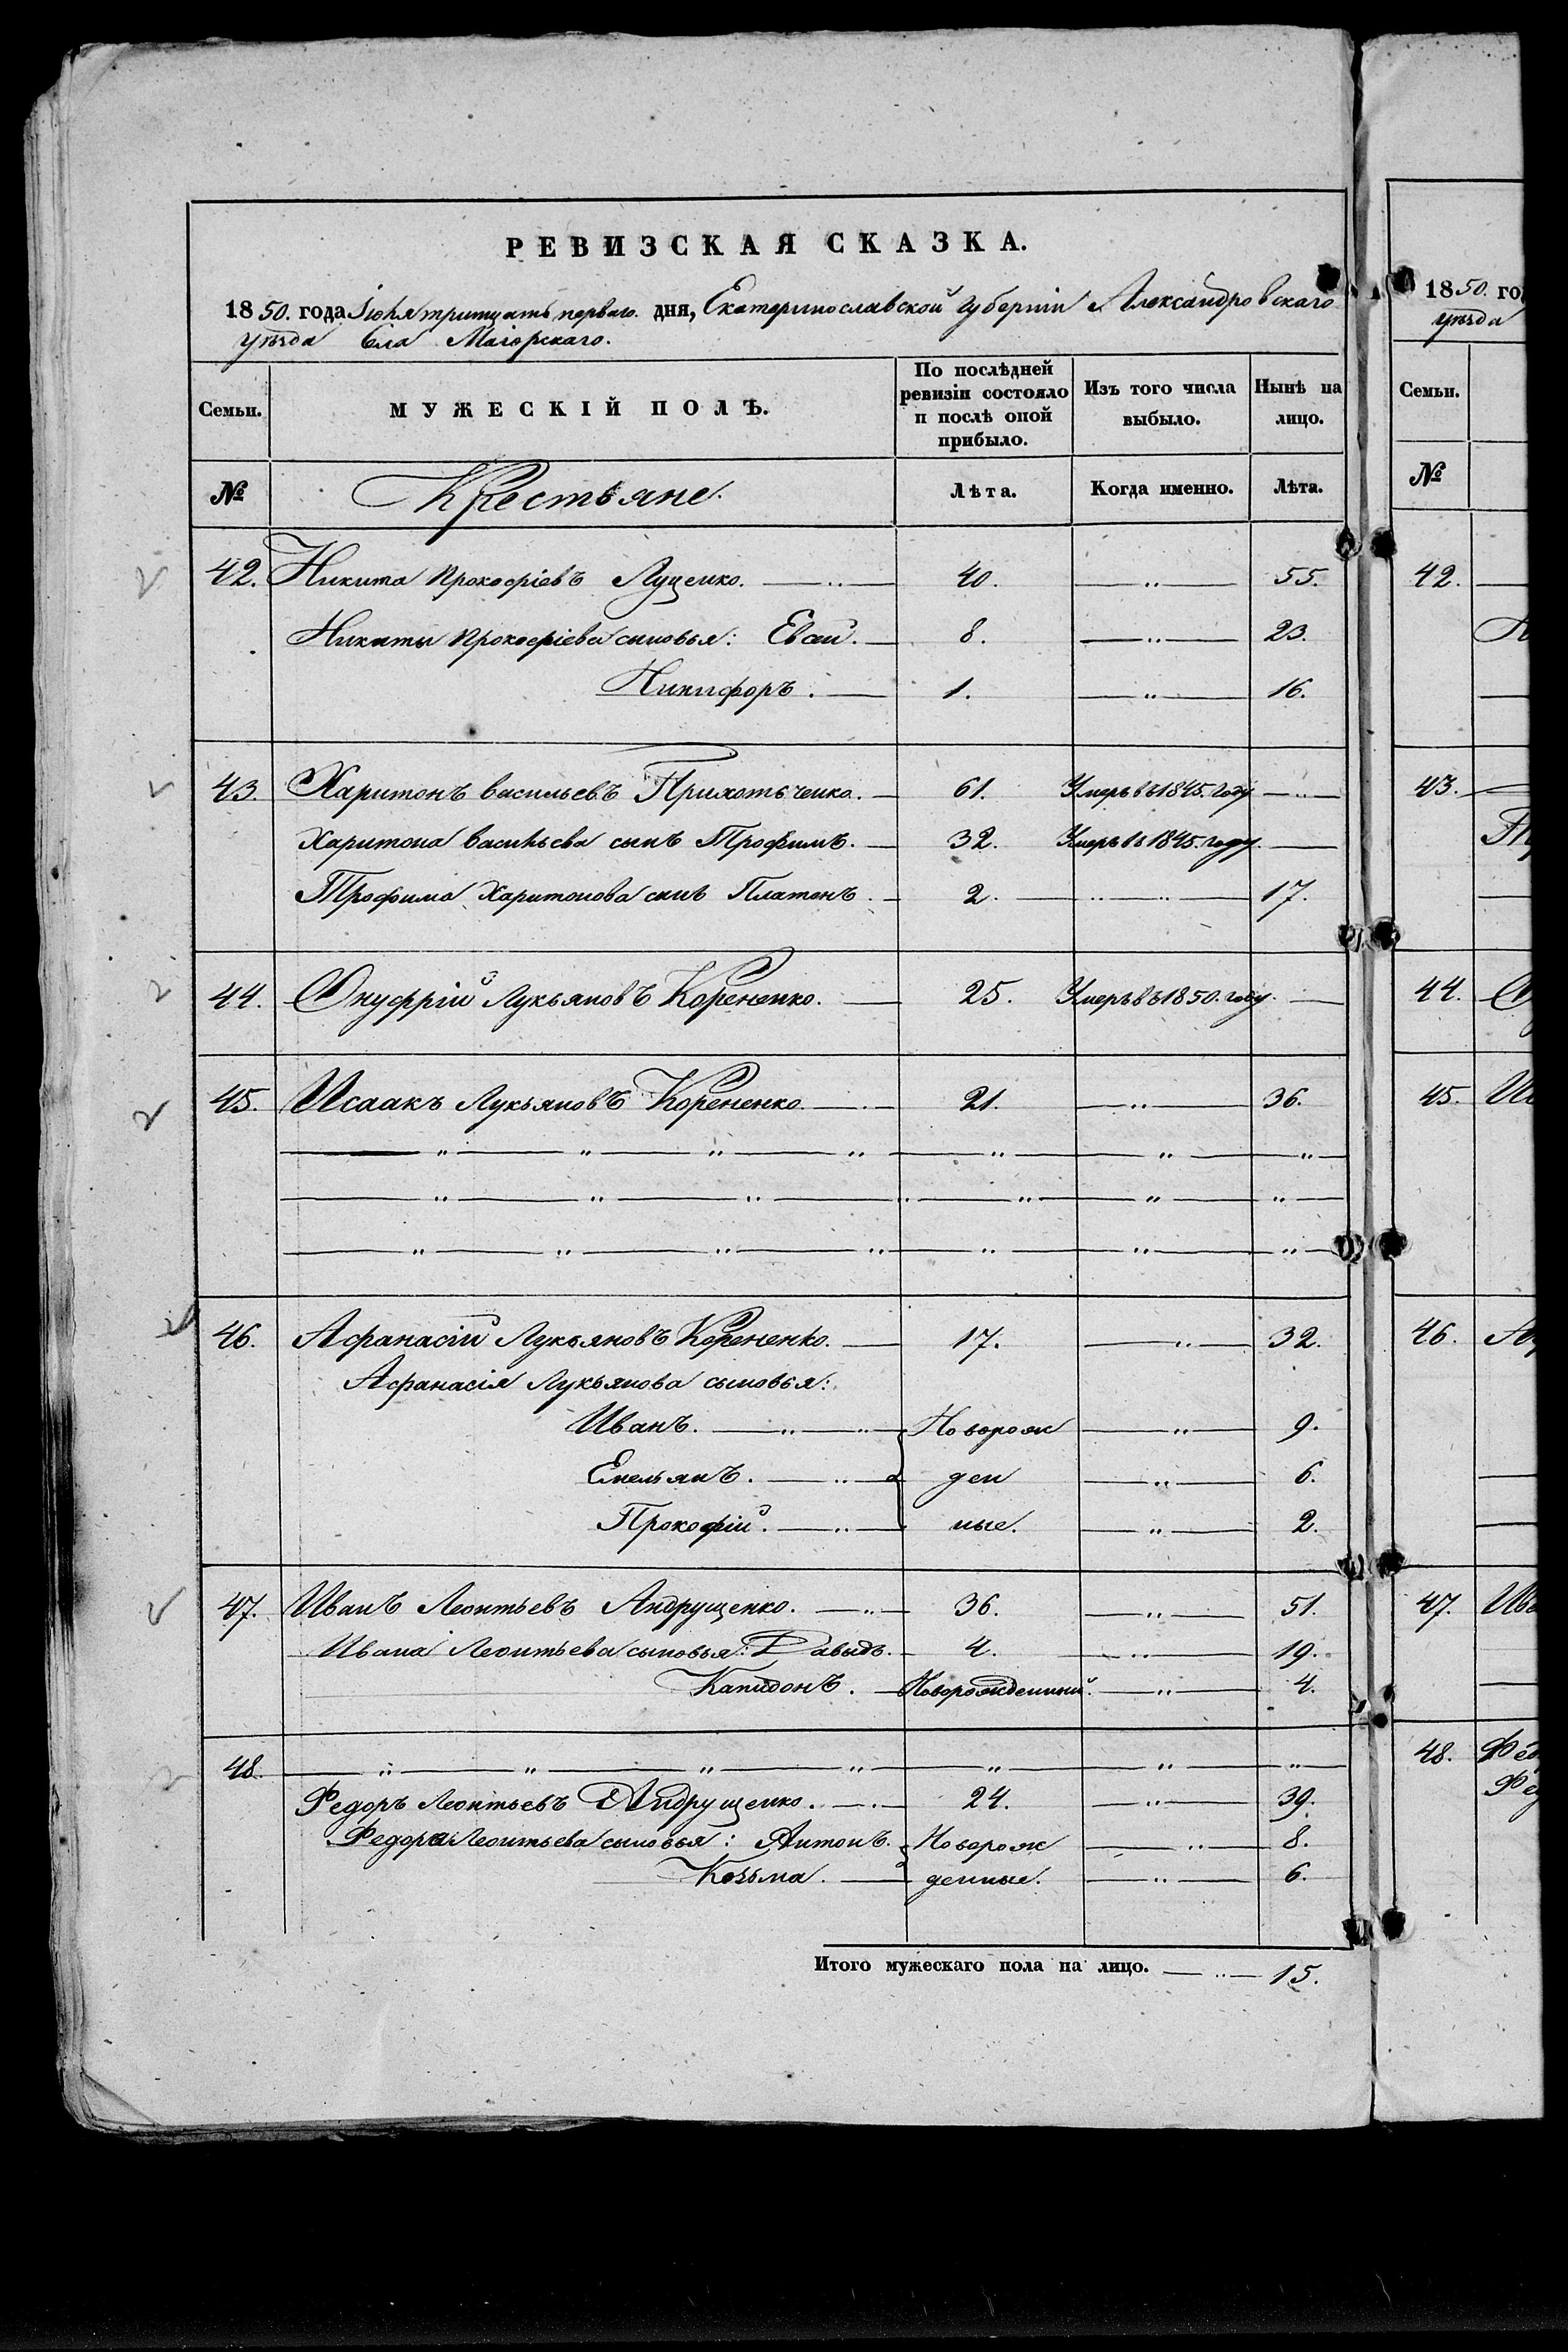 РЕВИЗСКАЯ СКАЗКА.
1850. года Іюля тритцать перваго. дня, Екатеринославской губерніи Александровскаго
уѣзда Села Маіорскаго.
Семьи. МУЖЕСКІЙ ПОЛЪ. По послѣдней ревизіи состояло и послѣ оной прибыло. Изъ того числа выбыло. Нынѣ на лицо.
№ Крестьяне. Лѣта. Когда именно. Лѣта.
42. Никита Прокофіевъ Луценко. 40. 55.
Никиты Прокофіева сыновья: Евсей. 8. 23.
Никифоръ. 1. 16.
43. Харитонъ Васильевъ Прихотьченко. 61. Умеръ въ 1845. году
Харитона Васильева сынъ Трофимъ. 32. Умеръ въ 1845. году.
Трофима Харитонова сынъ Платонъ. 2. 17.
44. Онуфрій Лукьяновъ Корененко. 25. Умеръ въ 1850. году.
45. Исаакъ Лукьяновъ Корененко. 21. 36.
46. Афанасій Лукьяновъ Корененко. 17. 32.
Афанасія Лукьянова сыновья:
Иванъ. Новорож 9.
Емельянъ. ден 6.
Прокофій. ные. 2.
47. Иванъ Леонтьевъ Андрущенко. 36. 51.
Ивана Леонтьева сыновья: Давыдъ. 4. 19.
Капидонъ. Новорожденный. 4.
48.
Федоръ Леонтьевъ Андрущенко. 24. 39.
Федора Леонтьева сыновья: Антонъ. Новорож 8.
Козьма. денные. 6.
Итого мужескаго пола на лицо. 15.
1850. го
уѣзда
Семьи.
№
42.
43.
44.
45.
46.
47.
48.